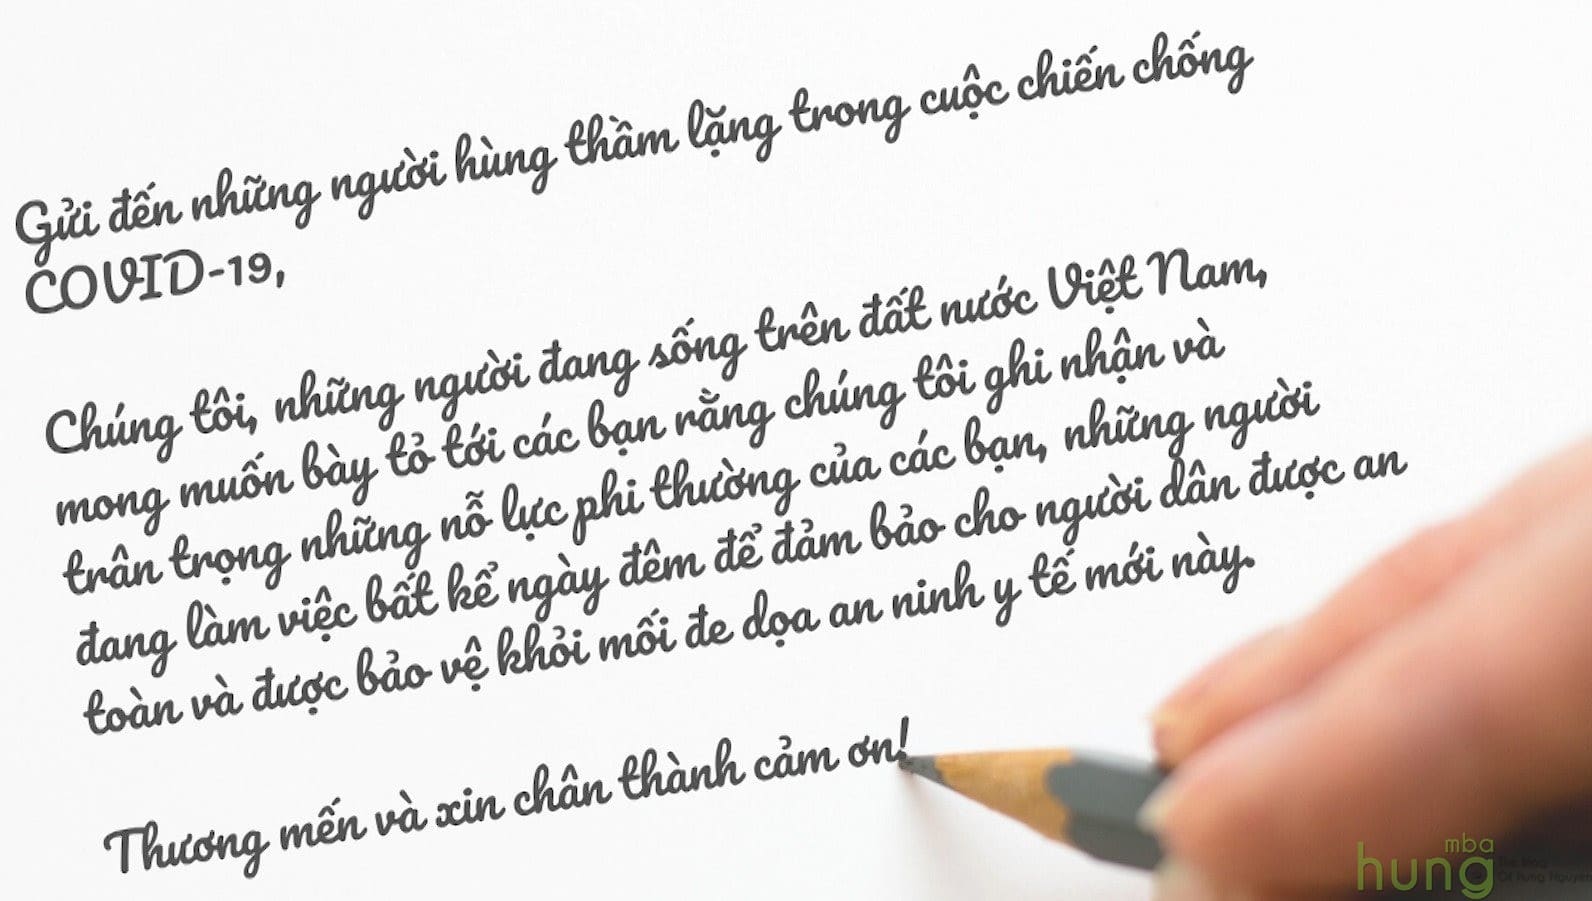 Gửi đến những người hùng thầm lặng trong cuộc chiến chống
COVID-19,
Chúng tôi, những người đang sống trên đất nước Việt Nam,
mong muốn bày tỏ tới các bạn rằng chúng tôi ghi nhận và
trân trọng những nỗ lực phi thường của các bạn, những người
đang làm việc bất kể ngày đêm để đảm bảo cho người dân được an
toàn và được bảo vệ khỏi mối đe dọa an ninh y tế mới này.
Thương mến và xin chân thành cảm ơn!
mba
hung
The Blog
Of Hung Nguyen